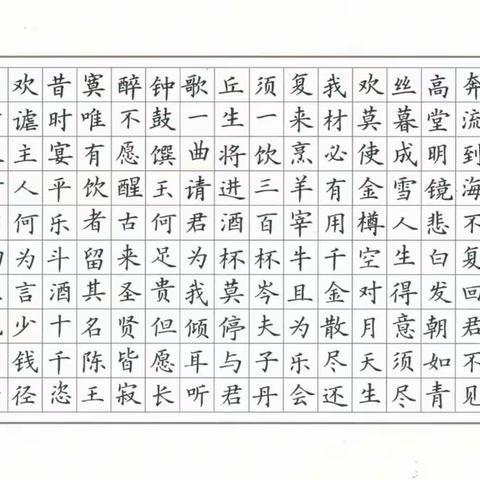 奔流到海不复回君不见
高堂明镜悲白发朝如青
丝暮成雪人生得意须尽
欢莫使金樽空对月天生
我材必有用千金散尽还
复来烹羊宰牛且为乐会
须一饮三百杯岑夫子丹
丘生将进酒杯莫停与君
歌一曲请君为我倾耳听
钟鼓馔玉何足贵但愿长
醉不愿醒古来圣贤皆寂
寞唯有饮者留其名陈王
昔时宴平乐斗酒十千恣
欢谑主人何为言少钱径